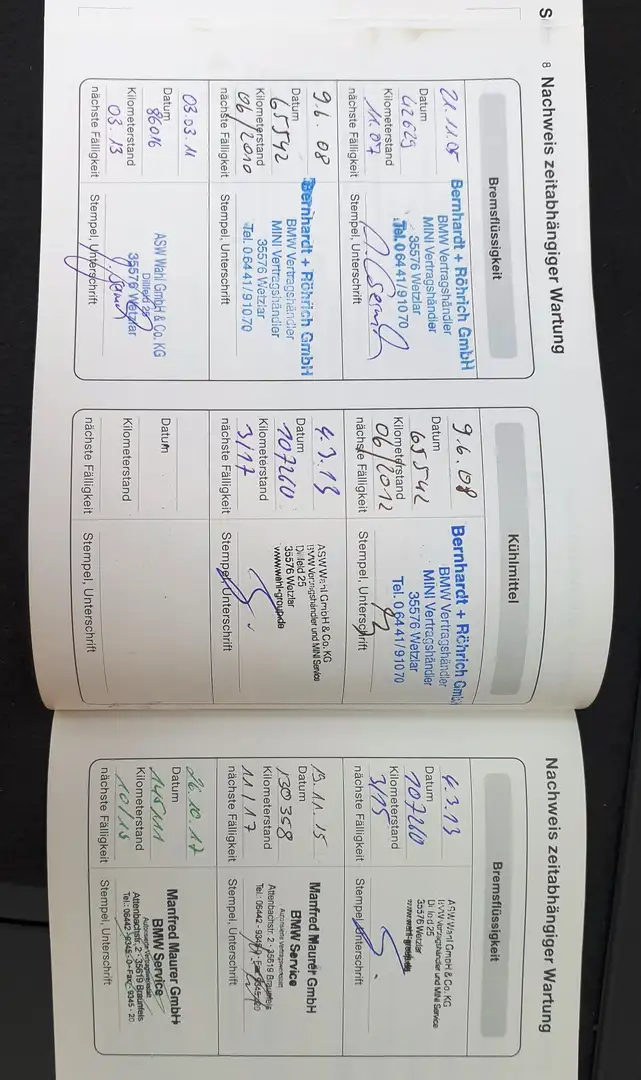 8 Nachweis zeitabhängiger Wartung
Bremsflüssigkeit
21.11.05
Datum
42629
Kilometerstand
11.07
nächste Fälligkeit
Bernhardt + Röhrich GmbH
BMW Vertragshändler
MINI Vertragshändler
35576 Wetzlar
Tel. 0 64 41/9 10 70
Stempel, Unterschrift
9.6.08
Datum
65542
Kilometerstand
06/2010
nächste Fälligkeit
Bernhardt + Röhrich GmbH
BMW Vertragshändler
MINI Vertragshändler
35576 Wetzlar
Tel. 0 64 41/9 10 70
Stempel, Unterschrift
03.03.11
Datum
86016
Kilometerstand
03.13
nächste Fälligkeit
ASW Wahl GmbH & Co. KG
Dillfeld 25
35576 Wetzlar
Stempel, Unterschrift
Kühlmittel
9.6.08
Datum
65542
Kilometerstand
06/2012
nächste Fälligkeit
Bernhardt + Röhrich GmbH
BMW Vertragshändler
MINI Vertragshändler
35576 Wetzlar
Tel. 0 64 41/9 10 70
Stempel, Unterschrift
4.3.13
Datum
107260
Kilometerstand
3/17
nächste Fälligkeit
ASW Wahl GmbH & Co. KG
BMW Vertragshändler und MINI Service
Dillfeld 25
35576 Wetzlar
www.wahl-group.de
Stempel, Unterschrift
Datum
Kilometerstand
nächste Fälligkeit
Stempel, Unterschrift
Nachweis zeitabhängiger Wartung
Bremsflüssigkeit
4.3.13
Datum
107260
Kilometerstand
3/15
nächste Fälligkeit
ASW Wahl GmbH & Co. KG
BMW Vertragshändler und MINI Service
Dillfeld 25
35576 Wetzlar
www.wahl-group.de
Stempel, Unterschrift
19.11.15
Datum
130358
Kilometerstand
11/17
nächste Fälligkeit
Manfred Maurer GmbH
BMW Service
Autorisierte Vertragswerkstatt
Attenbachstr. 2 · 35619 Braunfels
Tel.: 06442-9345-0
Stempel, Unterschrift
26.10.17
Datum
145111
Kilometerstand
nächste Fälligkeit
Manfred Maurer GmbH
BMW Service
Autorisierte Vertragswerkstatt
Attenbachstr. 2 · 35619 Braunfels
Tel.: 06442-9345-0 · Fax: 9345-20
Stempel, Unterschrift